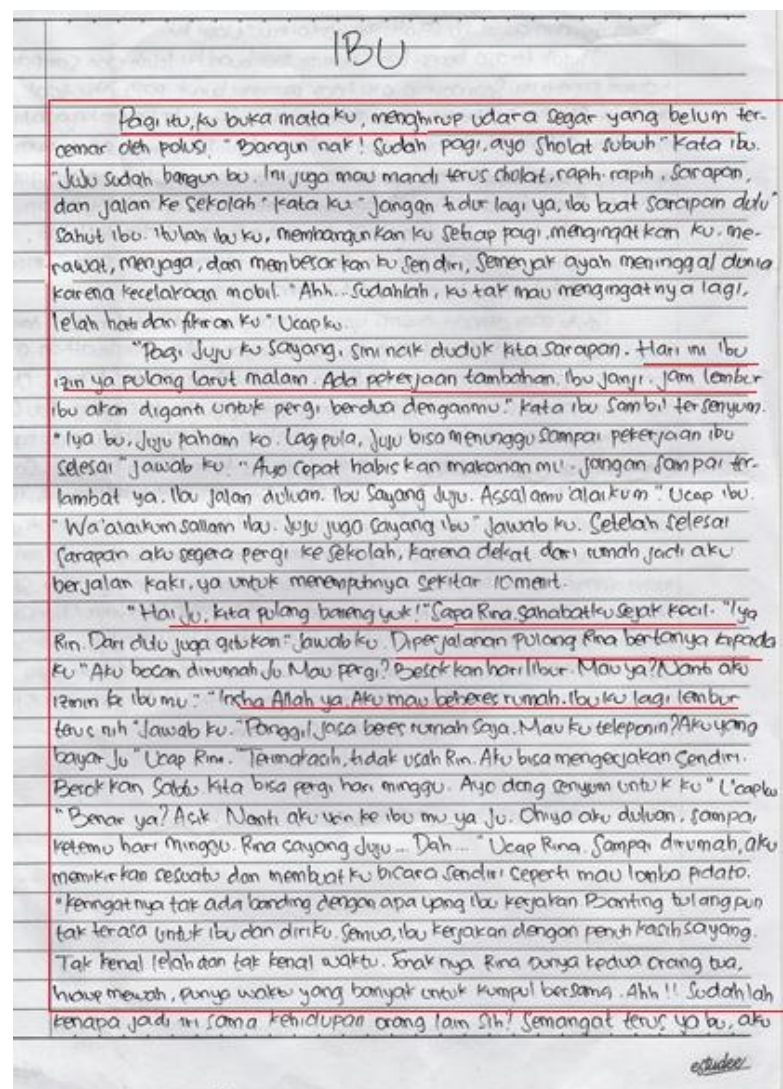 IBU
Pagi itu, ku buka mata ku, menghirup udara segar yang belum ter-
cemar oleh polusi. "Bangun nak! Sudah pagi, ayo sholat subuh" kata ibu.
"Juju sudah bangun bu. Ini juga mau mandi terus sholat, rapih-rapih, sarapan,
dan jalan ke sekolah" kata ku "Jangan tidur lagi ya, ibu buat sarapan dulu"
Sahut ibu. Itulah ibu ku, membangunkan ku setiap pagi, mengingatkan ku, me-
rawat, menjaga, dan membesarkan ku sendiri, semenjak ayah meninggal dunia
karena kecelakaan mobil. "Ahh... Sudahlah, ku tak mau mengingatnya lagi,
lelah hati dan fikiran ku" Ucap ku.
"Pagi Juju ku sayang, sini naik duduk kita sarapan. Hari ini Ibu
izin ya pulang larut malam. Ada pekerjaan tambahan. Ibu janji, jam lembur
ibu akan diganti untuk pergi berdua denganmu." kata ibu sambil tersenyum.
"Iya bu, Juju paham ko. Lagi pula, Juju bisa menunggu sampai pekerjaan ibu
selesai" jawab ku. "Ayo cepat habiskan makanan mu. Jangan sampai ter-
lambat ya. Ibu jalan duluan. Ibu Sayang Juju. Assalamu'alaikum" Ucap ibu.
"Wa'alaikum sallam ibu. Juju juga sayang ibu" jawab ku. Setelah selesai
sarapan aku segera pergi ke sekolah, karena dekat dari rumah jadi aku
berjalan kaki, ya untuk menempuhnya sekitar 10 menit.
"Hai Ju, kita pulang bareng yuk!" Sapa Rina, sahabatku sejak kecil. "Iya
Rin. Dari dulu juga gitu kan" jawab ku. Diperjalanan pulang Rina bertanya kepada
ku "Aku bosan dirumah Ju. Mau pergi? Besok kan hari libur. Mau ya? Nanti aku
izinin ke ibu mu". "Insha Allah ya. Aku mau beberes rumah. Ibu ku lagi lembur
terus nih" Jawab ku. "Panggil jasa beres rumah saja. Mau ku teleponin? Aku yang
bayar Ju" Ucap Rina. "Terimakasih, tidak usah Rin. Aku bisa mengerjakan sendiri.
Besok kan Sabtu, kita bisa pergi hari minggu. Ayo dong senyum untuk ku" Ucapku
"Benar ya? Asik. Nanti aku izin ke ibu mu ya Ju. Ohiya aku duluan, sampai
ketemu hari minggu. Rina sayang Juju... Dah..." Ucap Rina. Sampai dirumah, aku
memikirkan sesuatu dan membuat ku bicara sendiri seperti mau lomba pidato.
"Keringat nya tak ada banding dengan apa yang ibu kerjakan Banting tulang pun
tak terasa untuk ibu dan diriku. Semua, ibu kerjakan dengan penuh kasih sayang.
Tak kenal lelah dan tak kenal waktu. Enak nya Rina punya kedua orang tua,
hidup mewah, punya waktu yang banyak untuk kumpul bersama. Ahh!! Sudahlah
kenapa jadi iri sama kehidupan orang lain sih? Semangat terus ya bu, aku
estudee